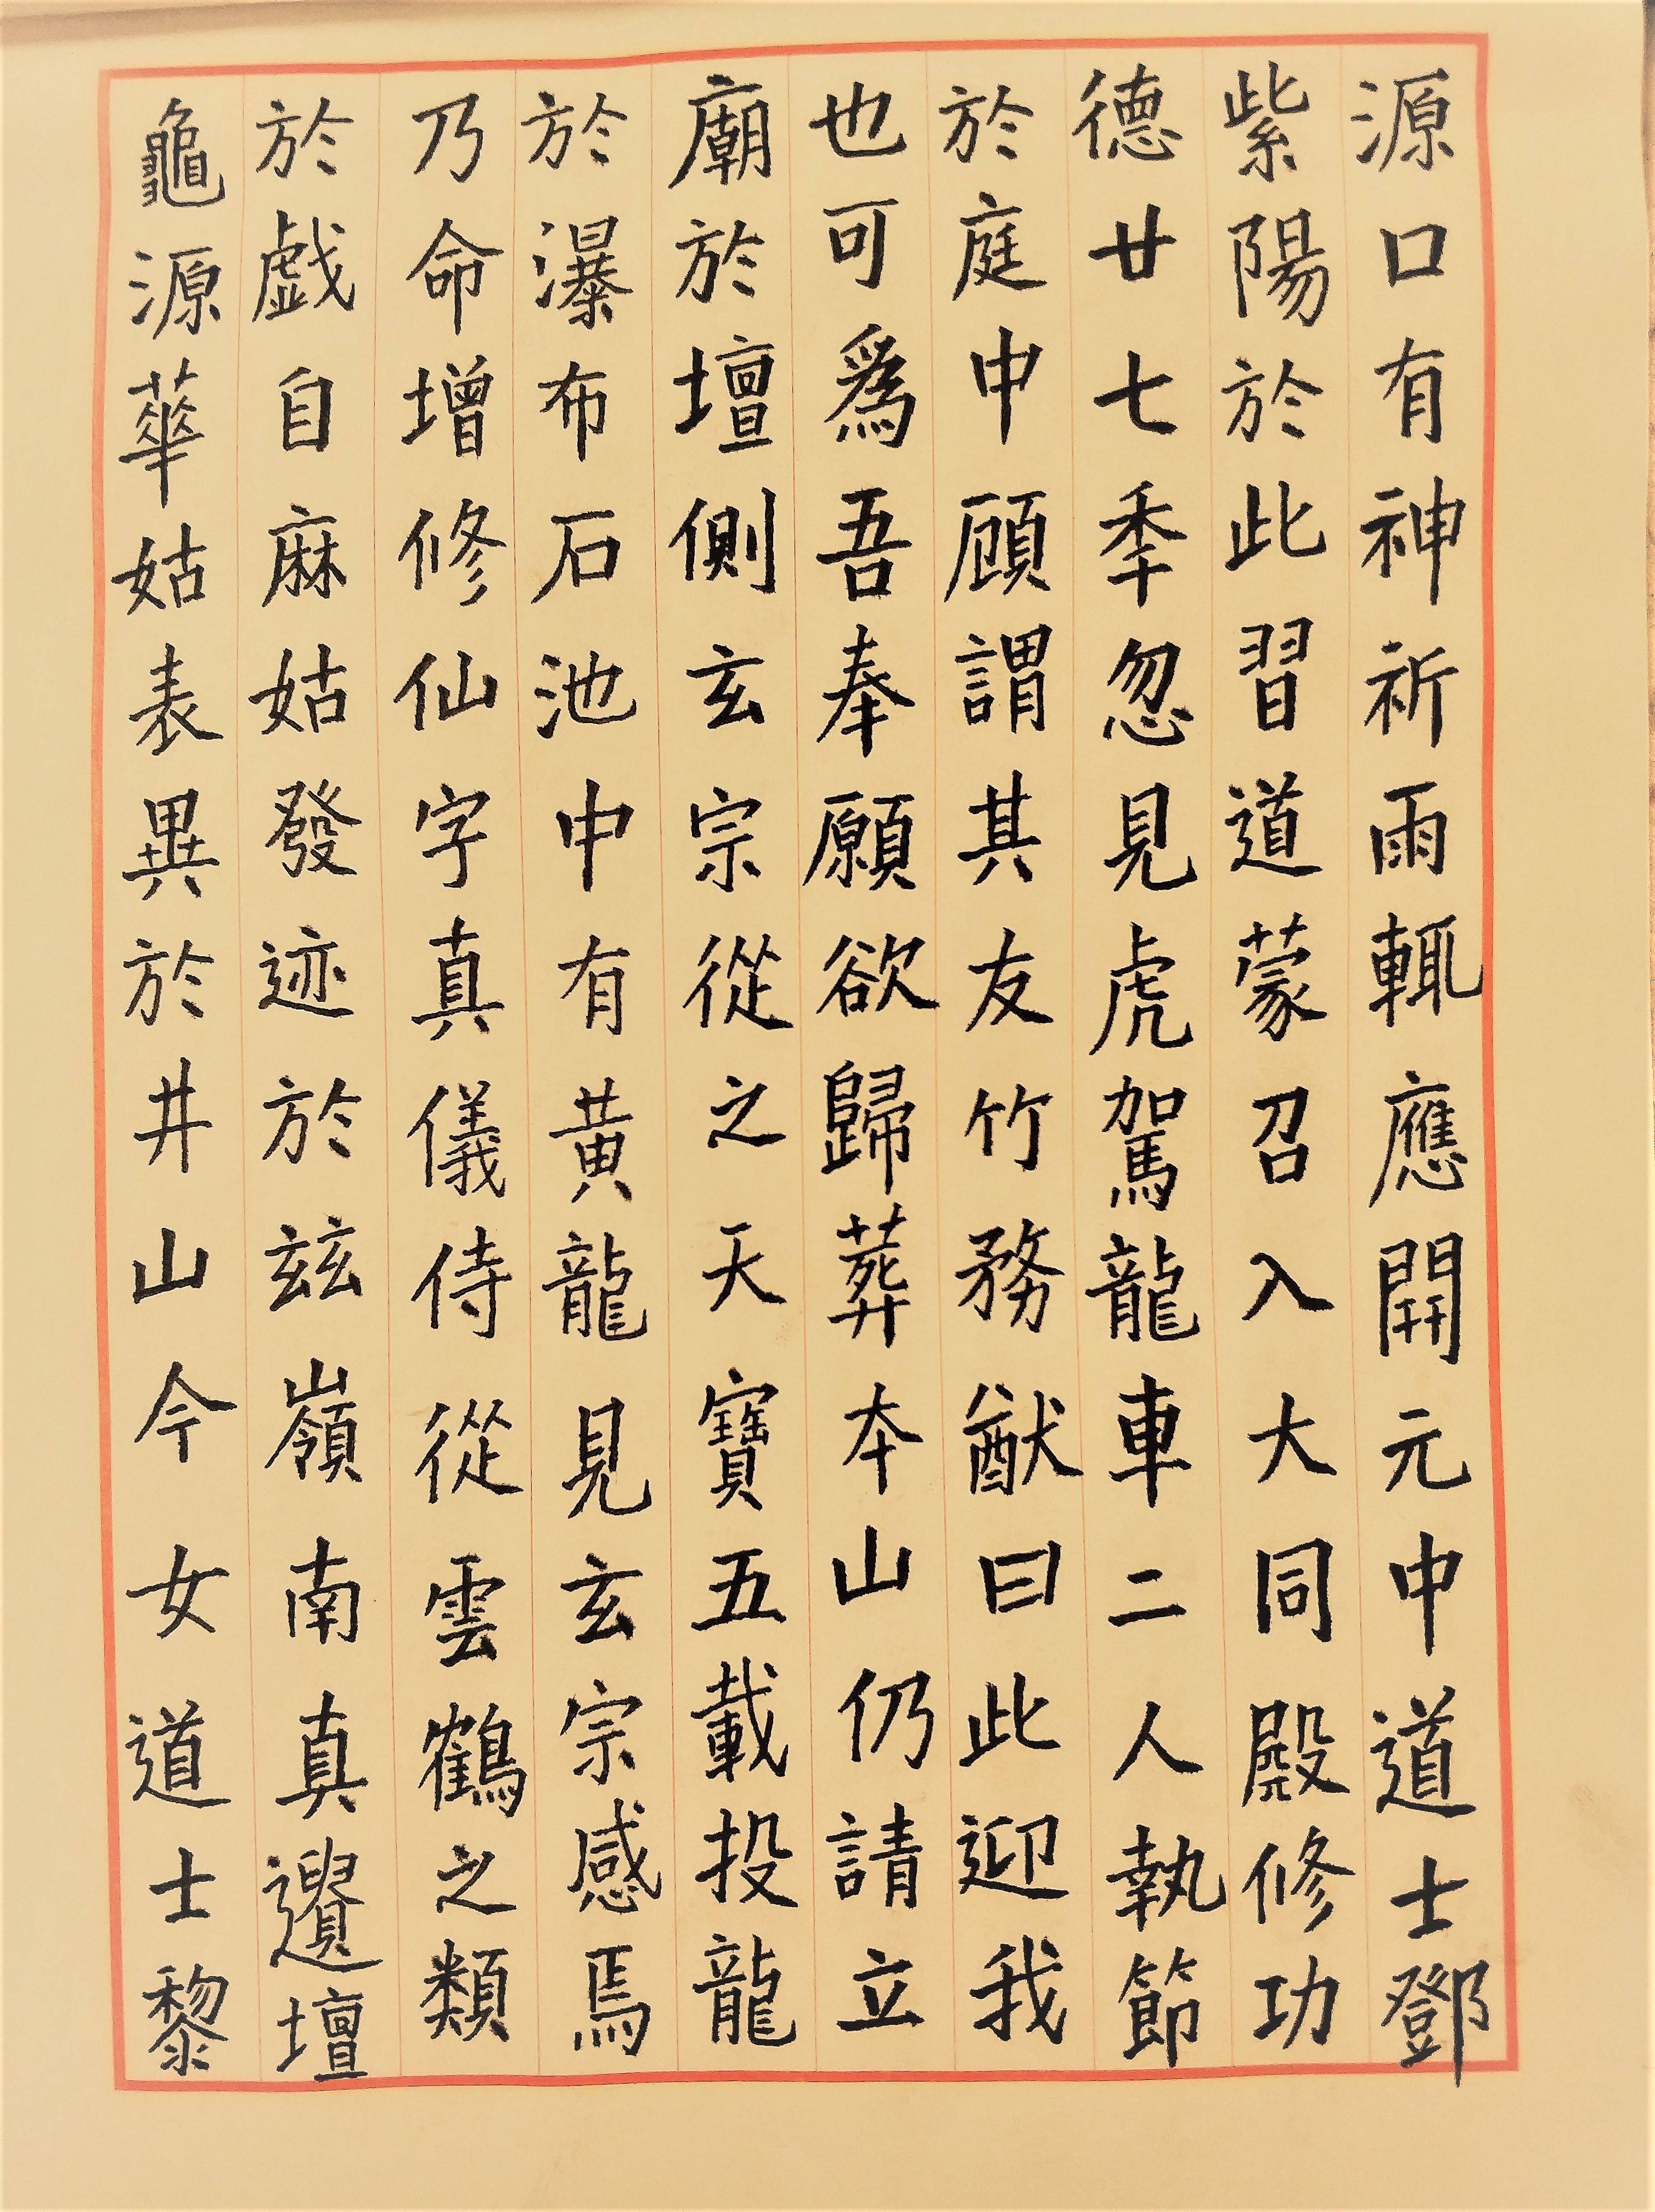 源口有神祈雨輒應開元中道士鄧
紫陽於此習道蒙召入大同殿修功
德廿七季忽見虎駕龍車二人執節
於庭中顧謂其友竹務猷曰此迎我
也可爲吾奉願欲歸葬本山仍請立
廟於壇側玄宗從之天寶五載投龍
於瀑布石池中有黄龍見玄宗感焉
乃命增修仙宇真儀侍從雲鶴之類
於戲自麻姑發迹於兹嶺南真遺壇
龜源華姑表異於井山今女道士黎